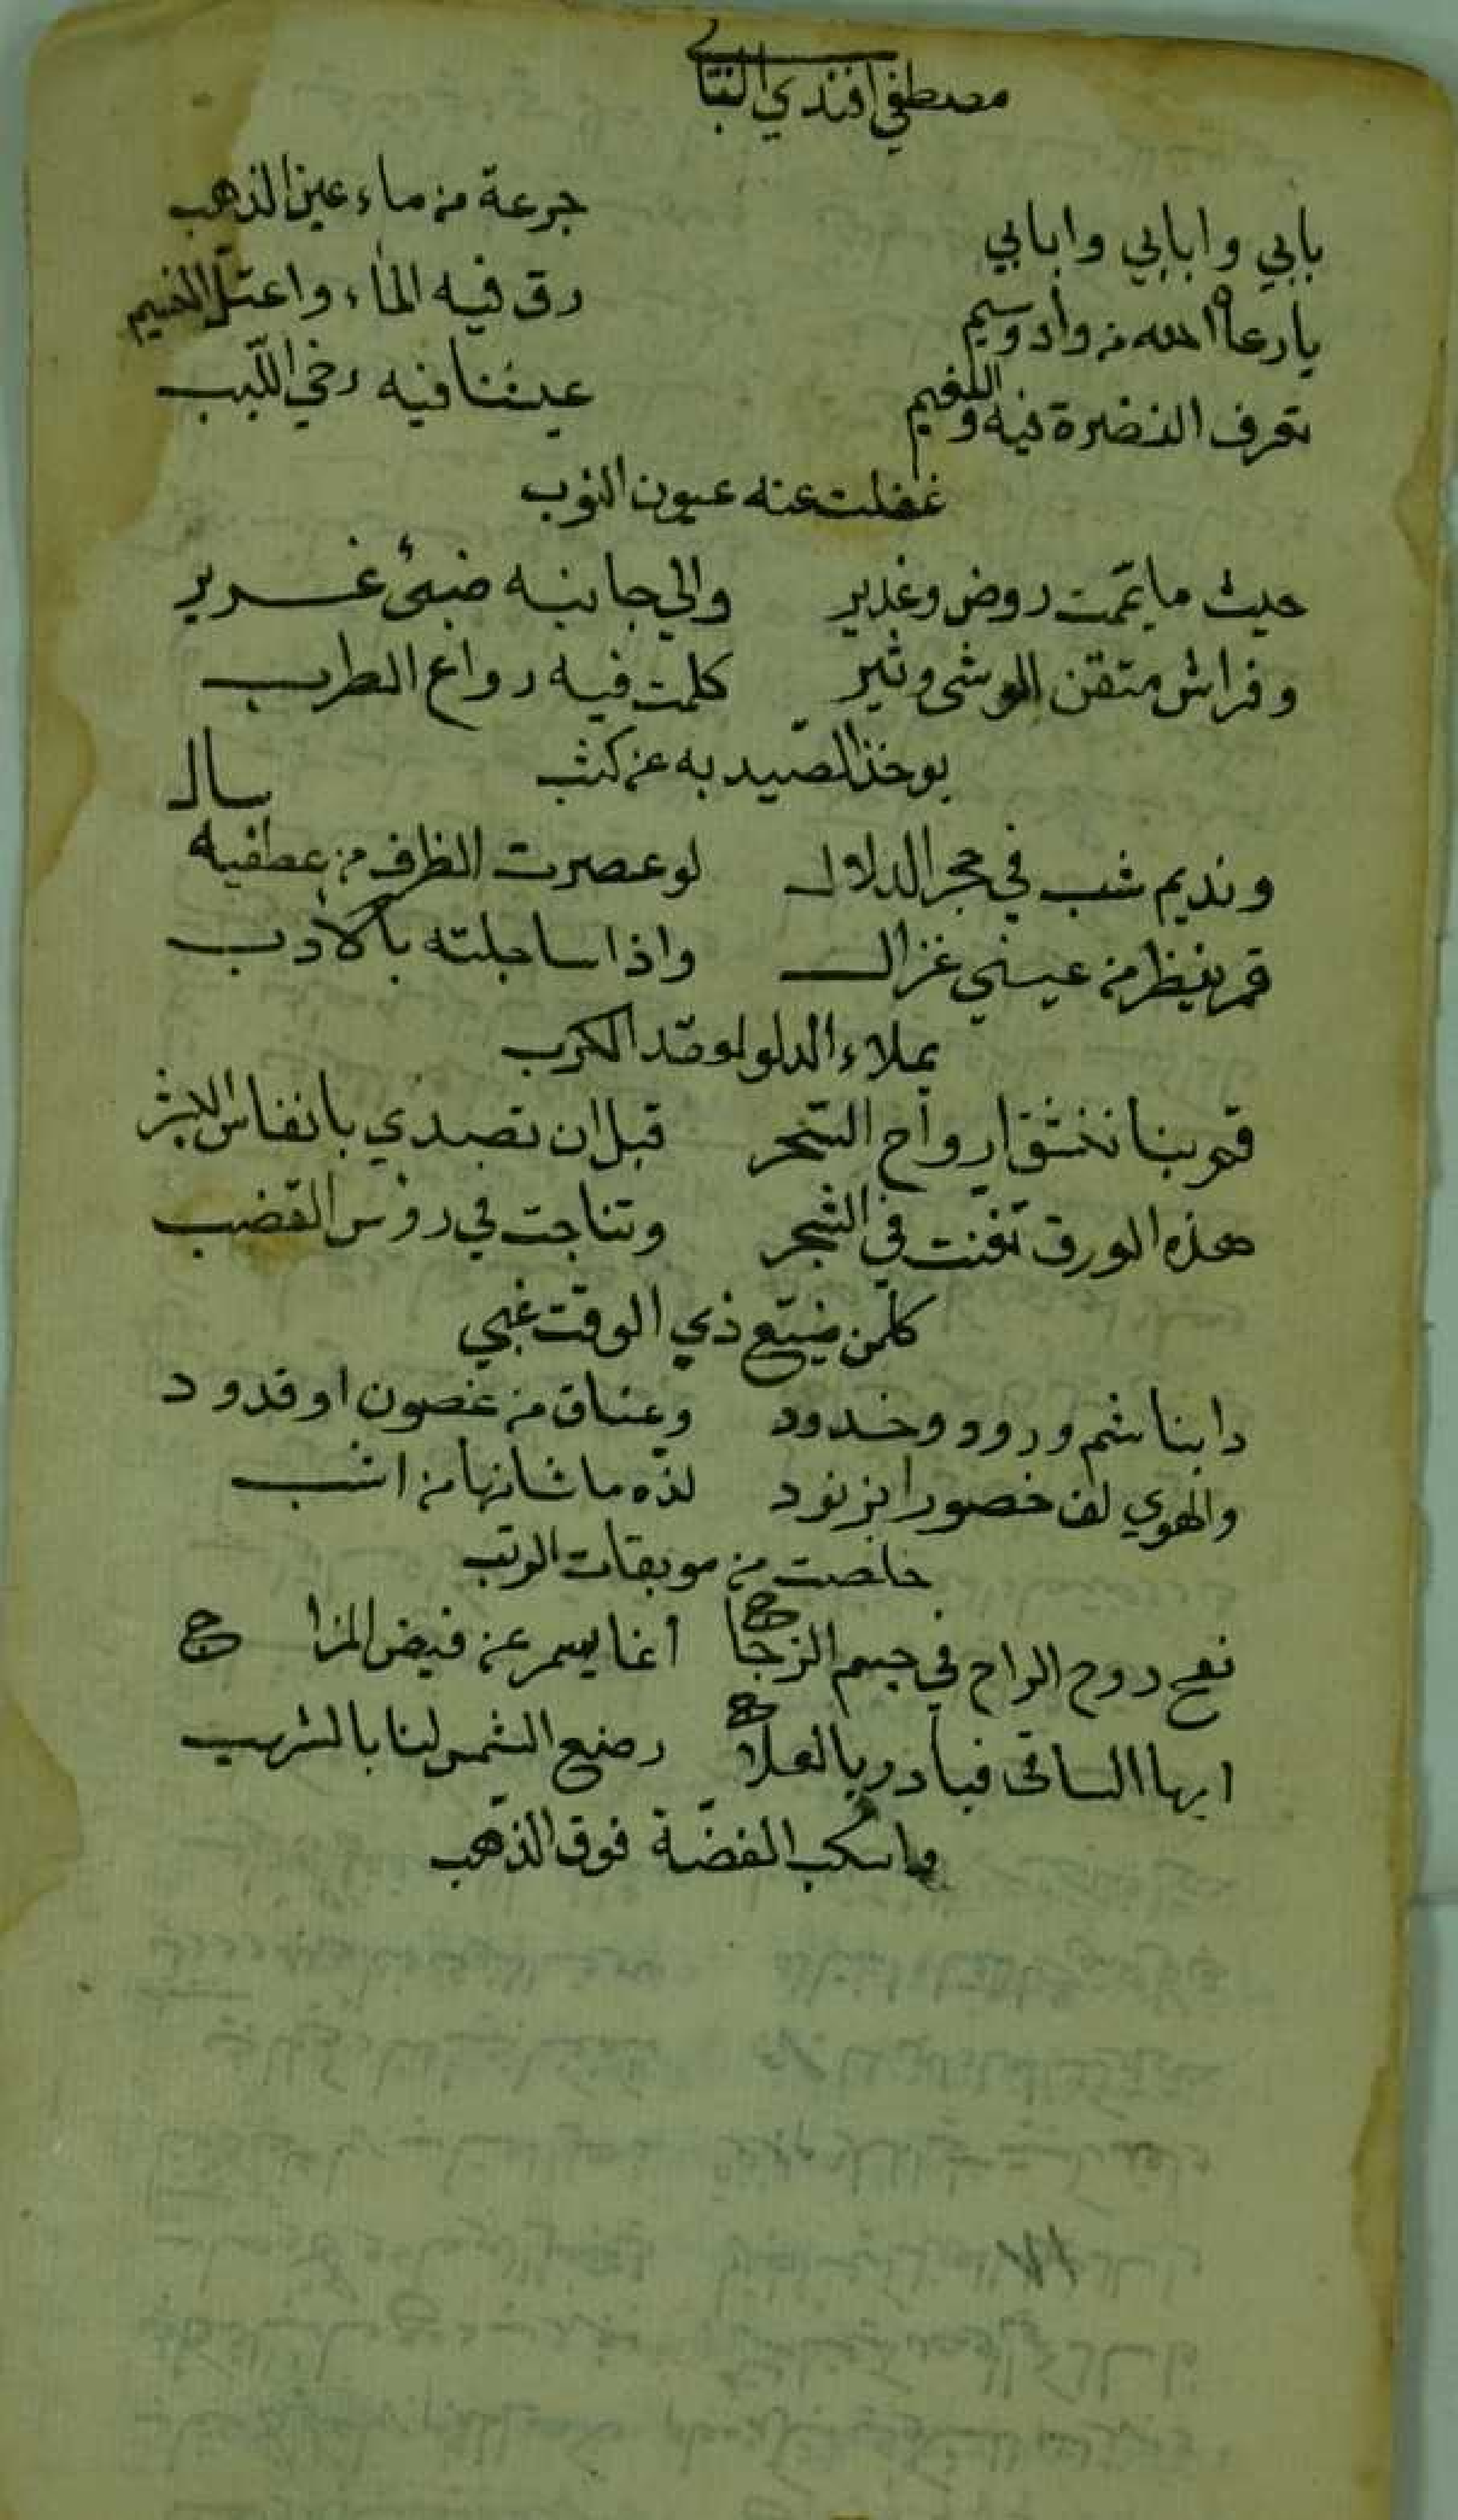 مصطفي افندي البتاي
بابي وابابي وابابي جرعة من ماء عين الذهب
يا رعاه الله من واد وسيم رق فيه الماء واعتل النسيم
تعرف النضرة فيه والنعيم عيشنا فيه رخي اللبب
غفلت عنه عيون النوب
حيث ما يممت روض وغدير والي جانبه ضبئ غرير
وفراش متقن الوشى وثير كلمت فيه رواع الطرب
يوخذ الصيد به عن كثب
ونديم شب في حجر الدلال لو عصرت الظرف من عطفيه سال
قمر ينظر من عيني غزال واذا ساجلته بالادب
يملاء الدلو لعقد الكرب
قم بنا ننشق ارواح السحر قبل ان تصدي بانفاس البشر
هذه الورق تغنت في الشجر وتناجت في روس القضب
كلمن ضيع ذي الوقت غبي
دابنا شم ورود وخدود وعناق من غصون او قدود
والهوي لف خصور بزنود لذه ما شانها من اشب
خلصت من موبقات الريب
نفح روح الراح في جسم الزجاج انما يسر عن فيض المزاج
ايها الساقى فبادر بالعلاج رضع الشمس لنا بالشهب
واسكب الفضة فوق الذهب